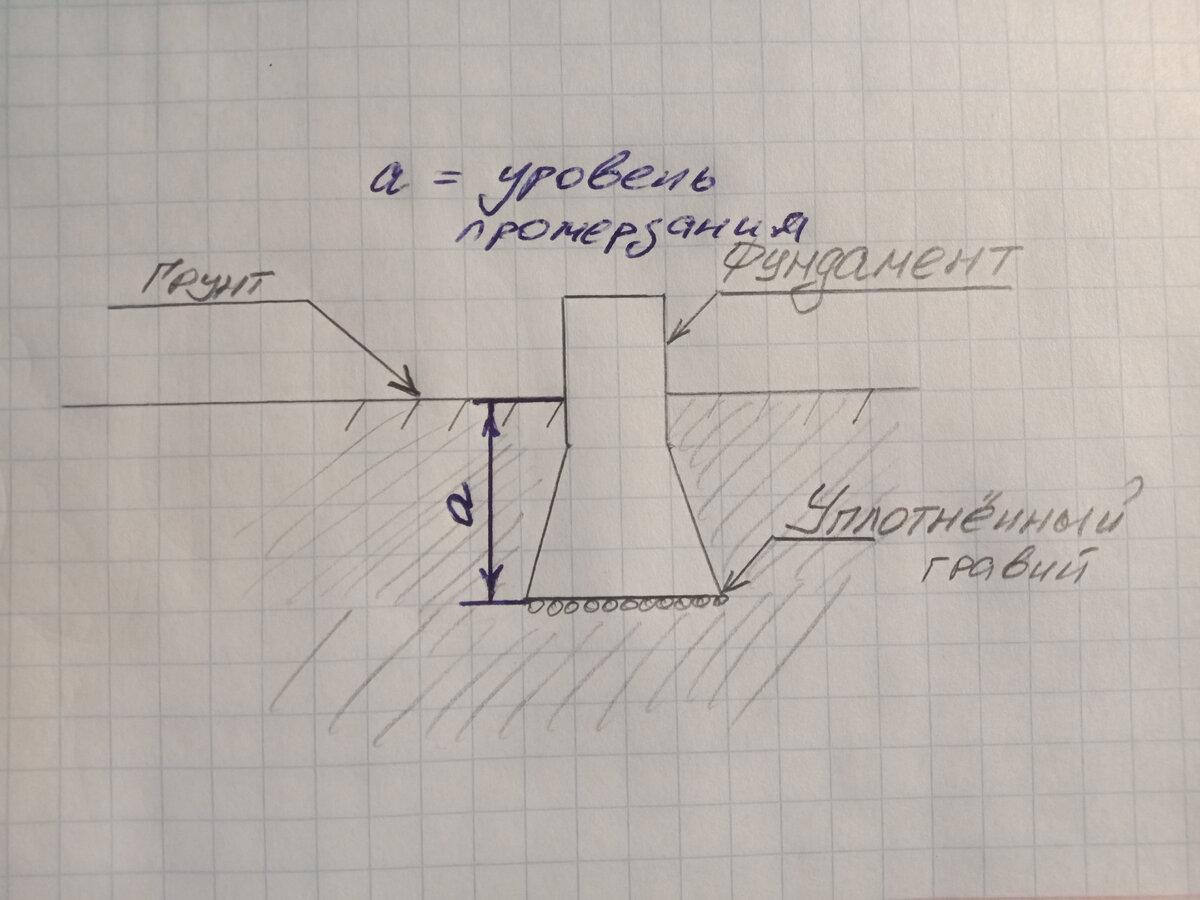 a = уровень
промерзания
Грунт
Фундамент
a
Уплотнённый
гравий